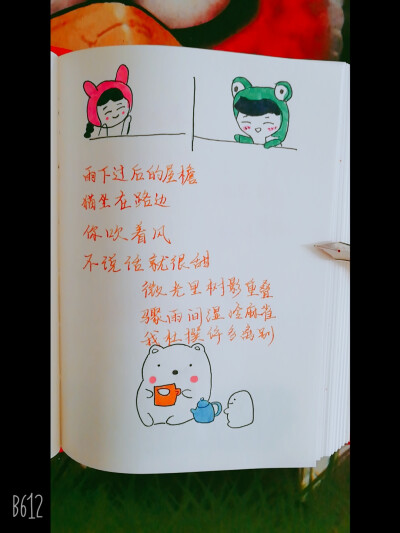 雨下过后的屋檐
猫坐在路边
你吹着风
不说话就很甜
微光里树影重叠
骤雨间湿麻雀
我杜撰许多离别
B612